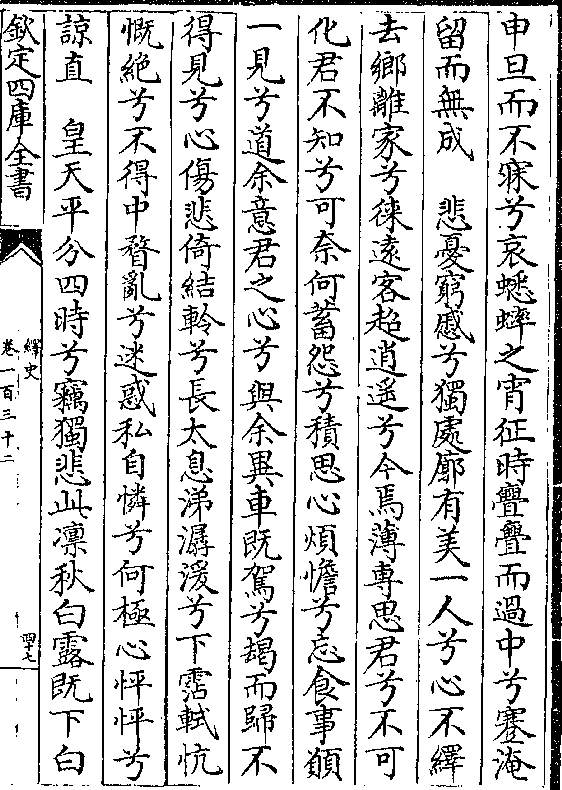 申旦而不寐兮哀蟋蟀之宵征時亹亹而過中兮蹇淹
留而無成　悲憂窮戚兮獨處廓有美一人兮心不繹
去鄉離家兮徠遠客超逍遥兮今焉薄専思君兮不可
化君不知兮可奈何蓄怨兮積思心煩憺兮忘食事願
一見兮道余意君之心兮與余異車既駕兮朅而歸不
得見兮心傷悲倚結軨兮長太息涕潺湲兮下霑軾忼
慨絶兮不得中瞀亂兮迷惑私自憐兮何極心怦怦兮
諒直　皇天平分四時兮竊獨悲此凛秋白露既下白
欽定四庫全書
繹史
卷一百三十二
四十七